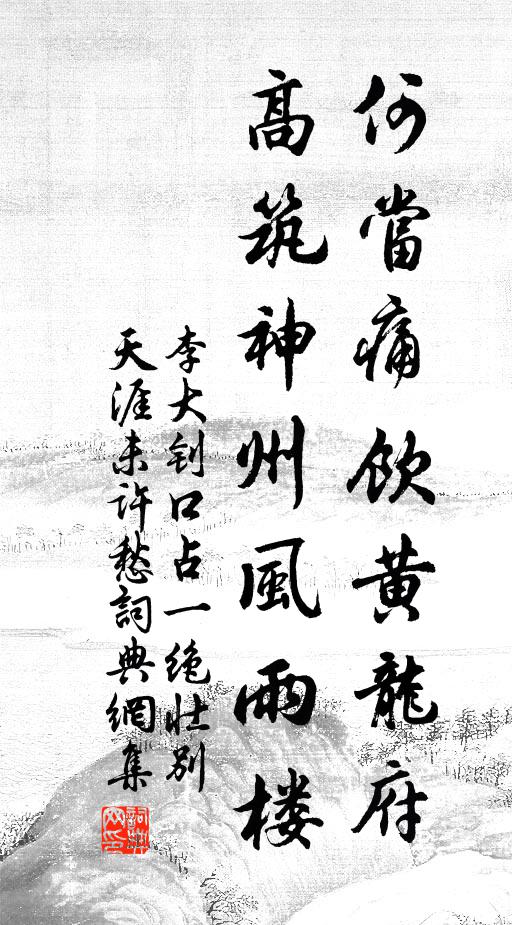 何當痛飲黄龍府
高筑神州風雨楼
李大钊口占一絶壮别
天涯未许愁詞典網集